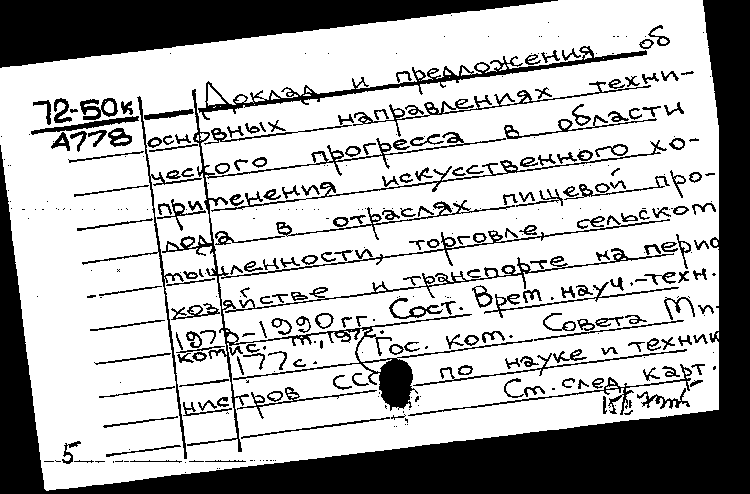 Доклад и предложения об
72-50к
4778
основных направлениях техни-
ческого прогресса в области
применения искусственного хо-
лода в отраслях пищевой про-
мышленности, торговле, сельском
хозяйстве и транспорте на перио
1973-1990 гг. Сост. Врем. науч.-техн.
комис. М., 1972.
177с. (Гос. ком. Совета Ми-
нистров ССС по науке и техник
См. след. карт.
5